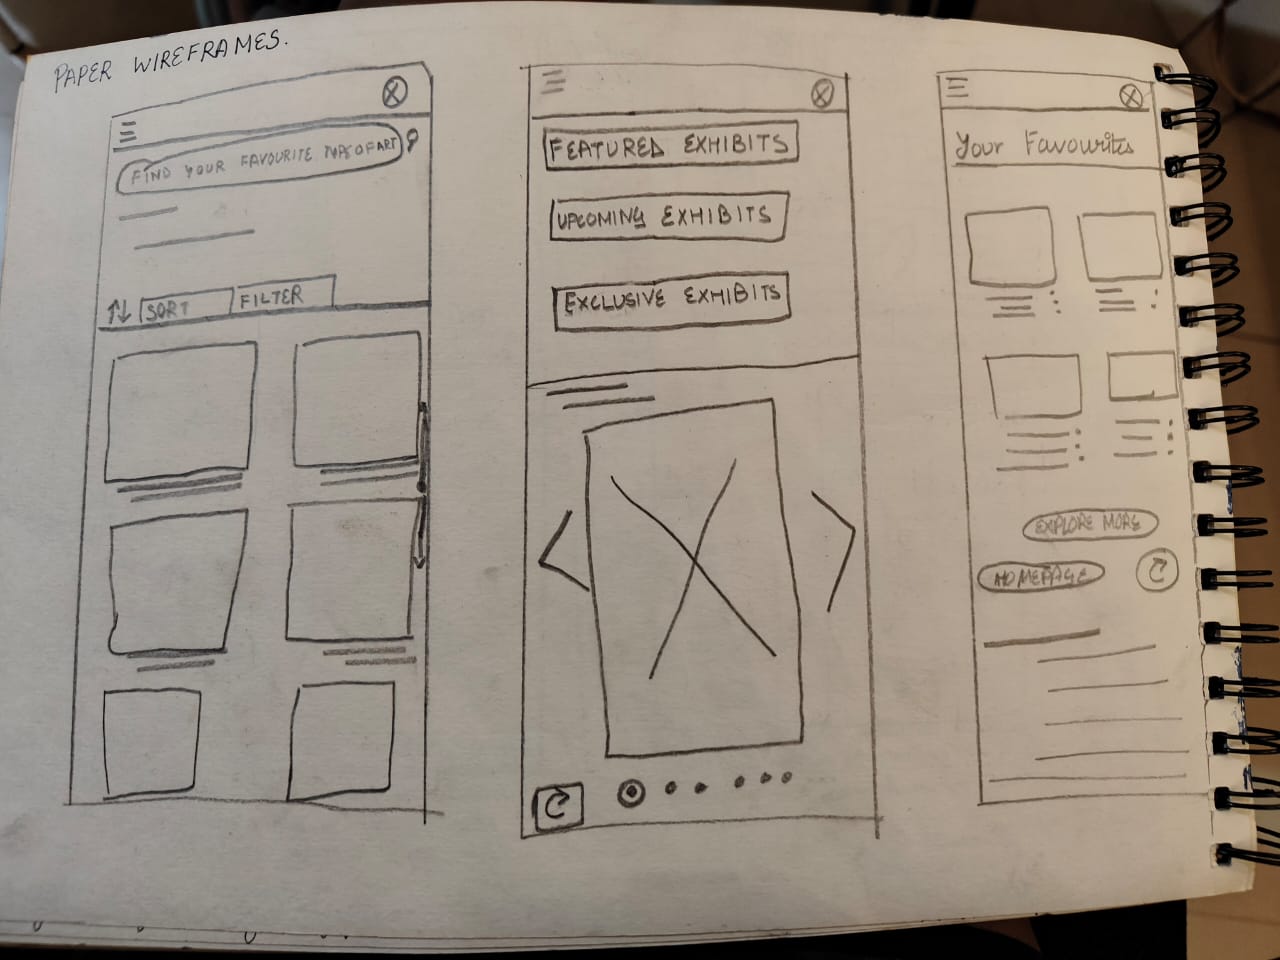 PAPER WIREFRAMES.
FIND YOUR FAVOURITE TYPE OF ART
SORT
FILTER
FEATURED EXHIBITS
UPCOMING EXHIBITS
EXCLUSIVE EXHIBITS
Your Favourites
EXPLORE MORE
HOMEPAGE